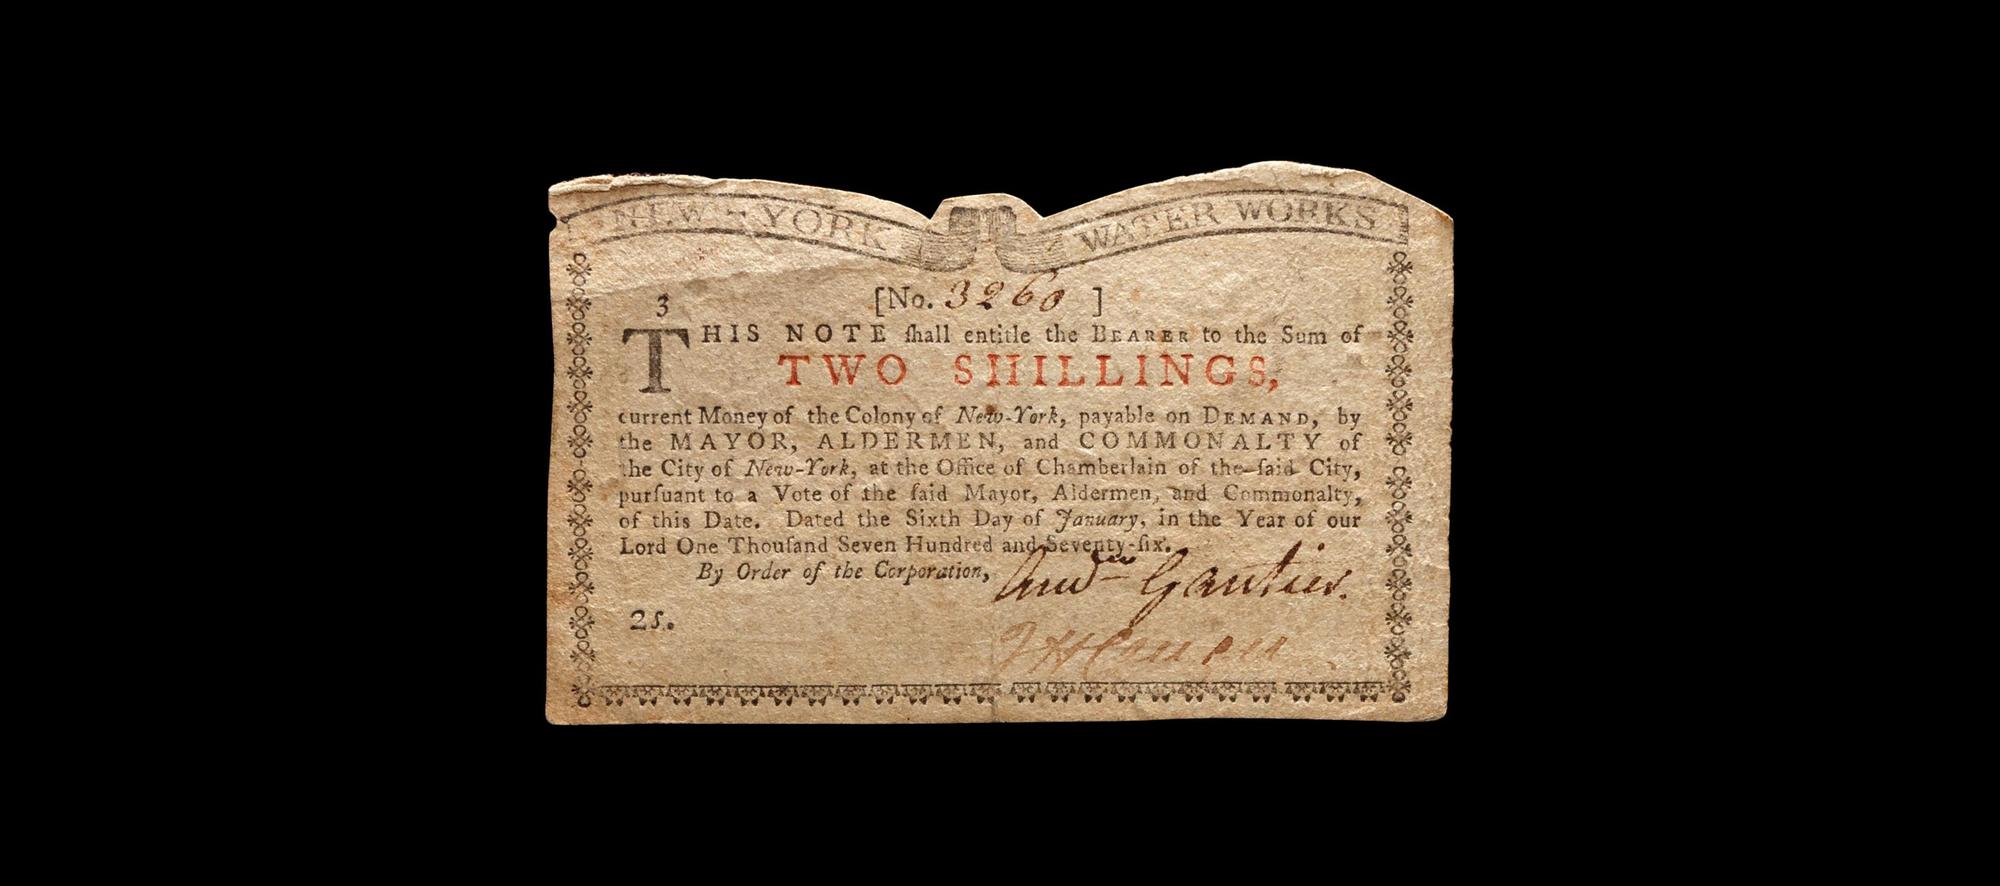 NEW-YORK WATER WORKS
3 [No. 3260 ]
THIS NOTE ſhall entitle the BEARER to the Sum of
TWO SHILLINGS,
current Money of the Colony of New-York, payable on DEMAND, by
the MAYOR, ALDERMEN, and COMMONALTY of
the City of New-York, at the Office of Chamberlain of the ſaid City,
purſuant to a Vote of the ſaid Mayor, Aldermen, and Commonalty,
of this Date. Dated the Sixth Day of January, in the Year of our
Lord One Thouſand Seven Hundred and Seventy-ſix.
By Order of the Corporation, And^w Gautier.
2s.